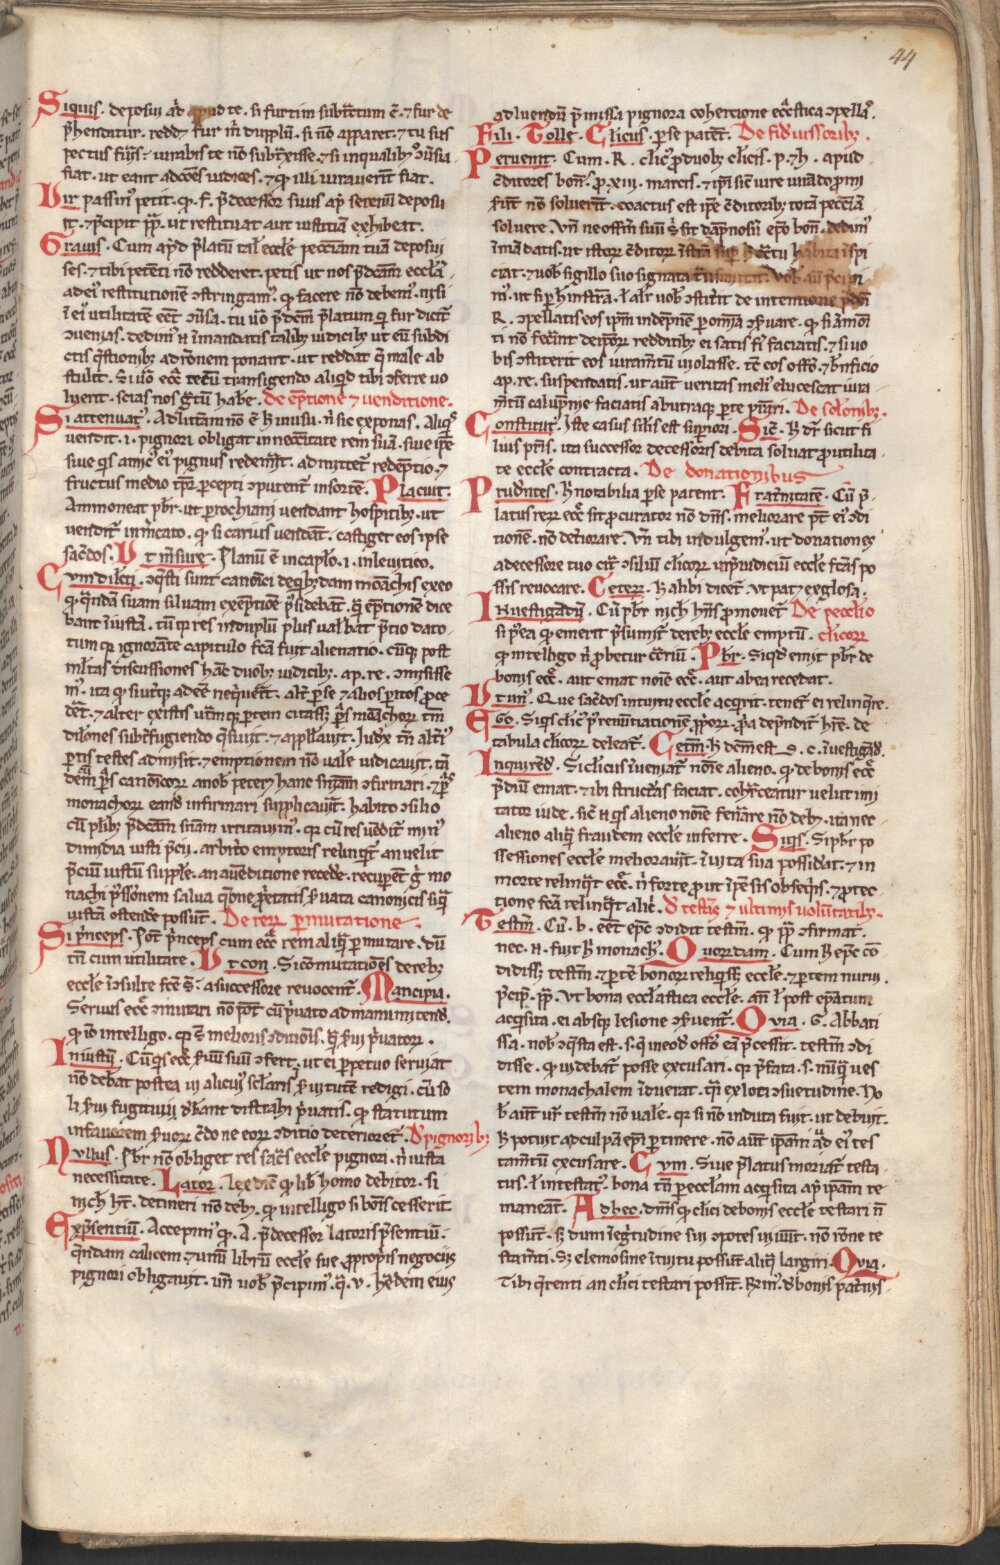 44
Siquis. deposui ap̃d apud te. si furtim subtractum ẽ. ⁊ fur de
p̃henditur. redd& fur m̃ dupplũ. si nõ apparet. ⁊ tu sus
pectus fũis. iurabis te nõ subtraxisse. ⁊ si in qualibꝫ cãusa
fiat. ut eant ad cõẽs iudices. ⁊ qꝫ illi iurauerĩt fiat.
Vir passim petit. qꝫ. f. p̃decessor suus apꝫ serenũ deposu
it. ⁊ p̃cipit pp̃. ut restituat aut iustitiã exhibeat.
Grauis. Cum ap̃d p̃latũ tal̃ eccl̃e pecc̃niam tuã deposui
ses. ⁊ tibi petẽti nõ redderet. petis ut nos p̃dc̃am eccl̃ã
ad eiꝰ restitutionẽ ɔstringamꝰ. qꝫ facere nõ debemꝰ. nisi
ĩ eiꝰ utilitatẽ eẽt ɔũsa. tu ũo p̃dc̃m p̃latum qͥ fur dicit̃
ɔuenias. dedimꝰ ñ ĩ mandatis talibꝫ iudicibꝫ ut eũ subdi
ctis q̃stionibꝫ ad rõnem ponant. ut reddat q̃ male ab
stulit. Si ũo ecc̃ tecũ transigendo aliqͥd tibi ɔferre uo
luerit. scias nos gr̃tũ habe. de ẽptione ⁊ venditione.
Si attenuatꝰ. Ad litt̃am nõ ẽ h̃ in usu. ñ sic exponas. Aliqͥs
uendit. i. pignori obligat in necc̃itate rem suã. siue ip̃e
siue qͥs amicꝰ eiꝰ pignus redemit. admittet̃ redẽptio. ⁊
fructus medio tp̃r percepti ɔputent̃ in sortẽ. Placuit.
Ammoneat pb̃r. ut perochiani uendant hospitibꝫ. ut
uendit̃ in m̃cato. qꝫ si carius uendãt. castiget eos ipse
sac̃dos. Vt m̃sure. Planũ ẽ in cap̃lo. i. in leuitico.
Cum dilc̃ti. ɔq̃sti sunt canoĩci de qͥbꝫdam mõachis exeo
qꝫ q̃ndã suam siluam ex ẽptiõe p̃sidebãt. q̃ ẽptionẽ dice
bant iĩustã. tũ qꝫ res in duplũ plus ual̃bat p̃cio dato.
tum qꝫ ignorãte capitulo fc̃a fuit alienatio. cũqꝫ post
m̃ltas discussiones hãc duobꝫ iudicibꝫ. ap. re. ɔmisisse
mꝰ. ita qꝫ si ut̃qꝫ adeẽ neqͥuerĩt. alt̃ per se ⁊ alios p̃itos p̃ce
dẽt. ⁊ alter
dilõnes subt̃fugiendo q̃siuit. ⁊ app̃llauit. Iudx̃ tñ alt̃iꝰ
p̃tis testes admisit. ⁊ emptionem nõ ual̃e iudicauit. tã
dẽ p̃s canonicorꝫ a nob̃ petent hanc sn̄iam ɔfirmari. ⁊ p̃s
monachorꝫ eand̃ infirmari supplicauit. habito ɔsilio
cũ pl̃ibꝫ p̃dc̃am sn̄am irritauimꝰ. qꝫ cũ res uẽdit̃ minꝰ
dimidia iusti p̃cii. arbit̃o emptoris relinqͥt̃ an uelit
p̃ciũ iustũ supple. an a uẽditione recede. recuperẽt g̃ mo
nachi p̃ssionem salua q̃one p̃rietatis p̃uata canonicis si qͣ
iustã ostende possunt. De rerũ permutatione.
Si p̃nceps. Pot̃ p̃nceps cum ecc̃ rem aliqͣ permutare. dũ
tñ cum utilitate. Vt con. Si cõmutatiões de rebꝫ
eccl̃e ĩɔsulte fc̃e s̃. a successore reuocent̃. Mancipia.
Seruus ecc̃ ɔmutari nõ põt cũ p̃uato ad manumittend̃.
qꝫ iõ intelligo. qꝫ s̃ melioris ɔditiõis. q̃ s̃ui p̃uatorꝫ.
Iniustũ. Cũ qͥs ecc̃ s̃uũ suũ ɔfert. ut ei perpetuo seruiat
nõ debat postea in alicuiꝰ sc̃laris s̃uitutẽ redigi. cũ so
li s̃ui fugitiuii d̃bant distrahi p̃uatis. qꝫ statutum
in fauorem s̃uorꝫ c̃do ne eorꝫ ɔditio deterioret̃. De pignoribꝫ
Nullus. Pb̃r nõ obliget res sac̃s eccl̃e pignori. ñ iusta
necessitate. Lator. lex diã. qꝫ lib̃ homo debitor. si
inch̃ ht̃. detineri nõ debꝫ. qꝫ intelligo si boĩs cesserit.
Ex p̃sentiũ. Accepimꝰ qꝫ. A. p̃decessor latoris p̃sentiũ.
q̃ndam calicem ⁊ unũ librũ eccl̃e sue. pro propriis negociis
pignori obligauit. uñ uob̃ p̃cipimꝰ. q̃. v. h̃edem eius
ad luendũ p̃missa pignora cohercione ecc̃stica ɔpellat̃.
Fili. Tolle. Clicus. per se patet. De fideiussoribꝫ.
Peruenit. Cum. R. clic̃ꝰ pro duobꝫ cl̃icis. p. ⁊ h. apud
c̃ditores bon̄. pro. xiii. marcis. ⁊ ip̃i sic̃ iureiurãdo pm̃
s̃ũt nõ soluerĩt. coactus est ip̃e c̃ditoribꝫ totã pecc̃niã
soluere. Vñ ne offm̃ suũ s̃ sit dãpnosũ. ep̃o bon̄. dedimꝰ
ĩ mãdatis. ut istorꝫ c̃ditorꝫ ĩstrã sup̃ hc̃tu habita ĩspi
ciat. ⁊ uob̃ sigillo suo signata
mꝰ. ut si per h̃ instr̃a. l̃ alr̃ uob̃ ɔstitit de intentione p̃dc̃i
R. ɔpellatis eos ip̃m indẽpnẽ per omĩa ɔs̃uare. qꝫ si amoñ
ti nõ fec̃int de ip̃orꝫ redditibꝫ ei satis fi faciatis. ⁊ si uo
bis ɔstiterit eos iuram̃tũ uiolasse. tc̃ eos offõ ⁊ b̃nficio
ap. re. suspendatis. ut aut̃ ueritas meliꝰ elucescat iura
m̃tũ calũpnie faciatis ab utraqꝫ p̃te p̃stari. De solõnibꝫ.
Constitut̃. Iste casus sil̃is est supiori. Sic̃. h̃ dr̃ sicut fi
lius pat̃s. ita successor decessoris debita soluat pro utilita
te eccl̃e contracta. De donationibus
Prud̃ntes. h̃ notabilia per se patent. Frat̃nitatẽ. Cũ p̃
latus rerꝫ ecc̃ sit procurator nõ dñs. meliorare põt eiꝰ ɔdi
tionẽ. nõ det̃iorare. Vñ tibi indulgemꝰ. ut donationes
a decessore tuo cit̃ ɔsiliũ clicorꝫ in p̃iudiciũ eccl̃e fc̃as po
ssis reuocare. Ceterꝫ. h̃ alibi dicet̃. ut pat̃ ex glosa.
Inuestigãdũ. Cũ pb̃r inch̃ hñs promouet̃ De peculio
si p̃ea qꝫ emerit p̃sumit̃ de rebꝫ eccl̃e emptũ. clicorꝫ
qꝫ intelligo ñ probetur c̃t̃riũ. Pb̃r. Siqͥd emit pb̃r de
bonis ecc̃. aut emat noĩe ecc̃. aut ab ea recedat.
Vt uñ. Que sac̃dos intuitu eccl̃e acqͥrit. tenet̃ ei relinqͥre.
Ego. Siqͥs clicꝰ p̃ renũtiationẽ
tabula clicorꝫ deleat̃. Cet̃m. h̃ de
Inquirẽd. Si clicus iueniat̃ noĩe alieno. qꝫ de bonis ecc̃
p̃diũ emat. ⁊ ibi structas faciat. coh̃ceatur uelut imi
tator iude. sic̃ ñ qͥs alieno noĩe fenerare nõ debꝫ. ita nec
alieno aliqͣ fraudem eccl̃e inferre. Siqͥs. Si pb̃r po
ssessiones eccl̃e meliorauit. ĩ uita sua possideat. ⁊ in
morte relinqͥt ecc̃. ñ forte pro ut ip̃e sis obseqͥis. ⁊ protec
tione fc̃a relinqͥt alic̃. de testam̃tis ⁊ ultimis uolũtatibꝫ.
Testm̃. Cũ. b. eẽt ep̃c ɔdidit testm̃. qꝫ pp̃ ɔfirmat.
nec. ñ. fuit h̃ monachꝰ. Quordam. Cum h̃ ep̃c cõ
didissꝫ testm̃. ⁊ p̃tẽ bonorꝫ reliqͥssꝫ eccl̃e. ⁊ p̃tem nurui.
p̃cipit pp̃. Vt bona eccl̃astica eccl̃e. añ l̃ post ep̃atum
acq̃sita. ei absqꝫ lesione ɔs̃uent̃. Quia. S. Abbati
ssa. nob̃ ɔq̃sta est. s. qꝫ in eod̃ offõ eã p̃cessit. testm̃ ɔdi
disse. qꝫ uidebat̃ posse excusari. qꝫ p̃fata. s. nũqͣ ues
tem monachalem ĩduerat. qm̃ ex loci ɔsuetudine. Ho
b̃ aut̃ ur̃ testm̃ nõ uale. qꝫ si nõ induta fuit. ut debuit.
h̃ potuit ad culpã ep̃i pertinere. nõ aut̃ ip̃am qͣd eiꝰ tes
tam̃tũ excusare. Cum. Siue p̃latus moriat̃ testa
tus. l̃ intestatꝰ. bona tñ per eccl̃am acq̃sita apꝫ ip̃am re
maneãt. Adhec. dimꝰ qꝫ cl̃ici de bonis eccl̃e testari ñ
possunt. sꝫ dum
stam̃ti. Sꝫ elemosine ĩtuitu possunt aliqͣ largiri. Quia.
Tibi q̃renti an cl̃ici testari possint. Rñmꝰ. de bonis pat̃nis